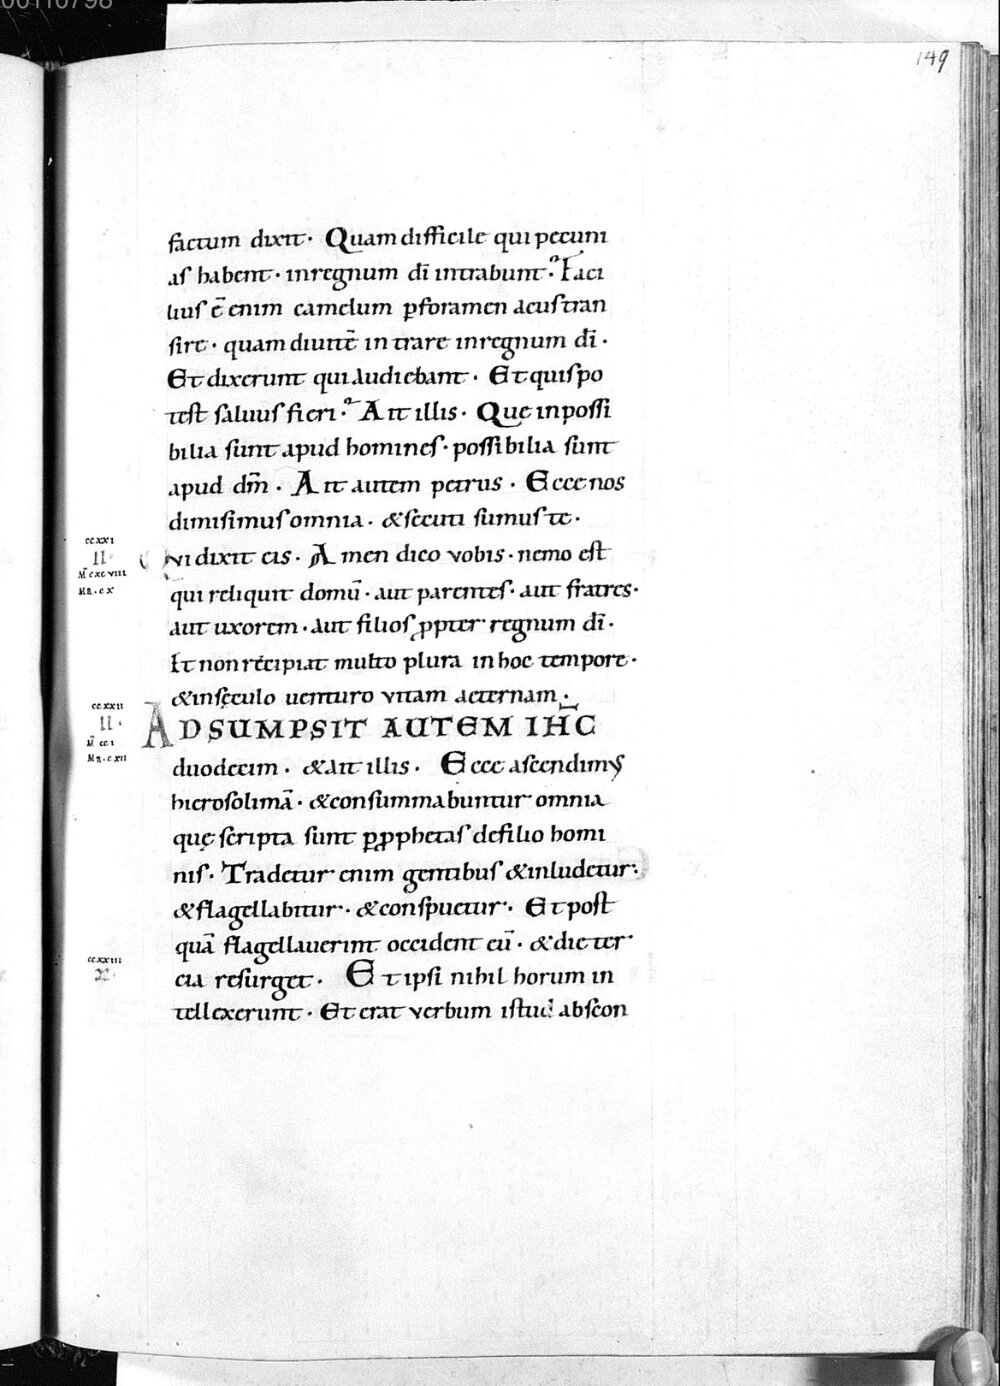 00110798
149
factum dixit· Quam difficile qui pecuni
as habent· in regnum dī intrabunt·? Faci
lius ē enim camelum pforamen acus tran
sire· quam diuitē intrare in regnum dī·
Et dixerunt qui audiebant· Et quis po
test saluus fieri·? Ait illis· Que inpossi
bilia sunt apud homines· possibilia sunt
apud dm̄· Ait autem petrus· Ecce nos
dimisimus omnia· & secuti sumus te·
ccxxi
II·
M̄ cxcviii
MR·cx
Qvi dixit eis· Amen dico vobis· nemo est
qui reliquit domū· aut parentes· aut fratres·
aut uxorem· aut filios ppter regnum dī·
Et non recipiat multo plura in hoc tempore·
& in sęculo uenturo vitam aeternam·
ccxxii
II·
M̄ cci
MR·cxii
ADSUMPSIT AUTEM IHC̄
duodecim· & ait illis· Ecce ascendimus
hierosolimā· & consummabuntur omnia
quę scripta sunt p pphetas de filio homi
nis· Tradetur enim gentibus & inludetur·
& flagellabitur· & conspuetur· Et post
quā flagellauerint occident eū· & die ter
ccxxiii
X·
cia resurget· Et ipsi nihil horum in
tellexerunt· Et erat verbum istud abscon